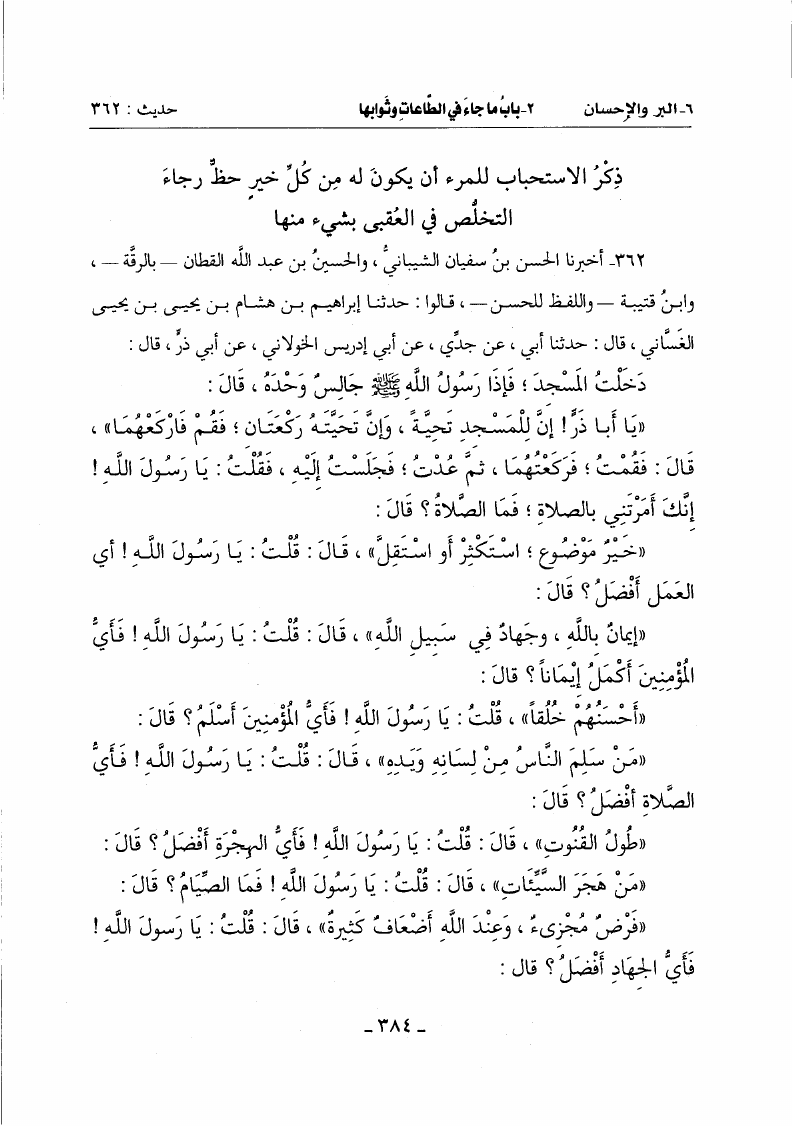 ٦- البر والإحسان ٢-بابُ ما جاءَ في الطَّاعاتِ وثَوابها حديث : ٣٦٢
ذِكْرُ الاستحباب للمرء أن يكونَ له مِن كُلِّ خيرٍ حظٌّ رجاءَ
التخلُّص في العُقبى بشيء منها
٣٦٢- أخبرنا الحسن بنُ سفيان الشيبانيُّ ، والحسينُ بن عبد الله القطان – بالرقَّة – ،
وابنُ قتيبة – واللفظ للحسن – ، قالوا : حدثنا إبراهيم بن هشام بن يحيى بن يحيى
الغسَّاني ، قال : حدثنا أبي ، عن جدِّي ، عن أبي إدريس الخولاني ، عن أبي ذرٍّ ، قال :
دَخَلْتُ المَسْجِدَ ؛ فَإِذَا رَسُولُ اللَّهِ ﷺ جَالِسٌ وَحْدَهُ ، قَالَ :
«يَا أَبَا ذَرٍّ! إِنَّ لِلْمَسْجِدِ تَحِيَّةً ، وَإِنَّ تَحَيَّتَهُ رَكْعَتَانِ ؛ فَقُمْ فَارْكَعْهُمَا» ،
قَالَ : فَقُمْتُ ؛ فَرَكَعْتُهُمَا ، ثمَّ عُدْتُ ؛ فَجَلَسْتُ إِلَيْهِ ، فَقُلْتُ : يَا رَسُولَ اللَّهِ !
إِنَّكَ أَمَرْتَنِي بالصلاةِ ؛ فَمَا الصَّلاةُ ؟ قَالَ :
«خَيْرٌ مَوْضُوعٍ ؛ اسْتَكْثِرْ أَوِ اسْتَقِلَّ» ، قَالَ : قُلْتُ : يَا رَسُولَ اللَّهِ ! أي
العَمَلِ أَفْضَلُ ؟ قَالَ :
«إيمَانٌ بِاللَّهِ ، وجِهَادٌ فِي سَبِيلِ اللَّهِ» ، قَالَ : قُلْتُ : يَا رَسُولَ اللَّهِ ! فَأَيُّ
المُؤْمِنِينَ أَكْمَلُ إِيْمَاناً ؟ قالَ :
«أَحْسَنُهُمْ خُلُقاً» ، قُلْتُ : يَا رَسُولَ اللَّهِ ! فَأَيُّ المُؤْمِنِينَ أَسْلَمُ ؟ قَالَ :
«مَنْ سَلِمَ النَّاسُ مِنْ لِسَانِهِ وَيَدِهِ» ، قَالَ : قُلْتُ : يَا رَسُولَ اللَّهِ ! فَأَيُّ
الصَّلاةِ أفْضَلُ ؟ قَالَ :
«طُولُ القُنُوتِ» ، قَالَ : قُلْتُ : يَا رَسُولَ اللَّهِ ! فَأَيُّ الهِجْرَةِ أَفْضَلُ ؟ قَالَ :
«مَنْ هَجَرَ السَّيِّئَاتِ» ، قَالَ : قُلْتُ : يَا رَسُولَ اللَّهِ ! فَمَا الصِّيَامُ ؟ قَالَ :
«فَرْضٌ مُجْزِىءٌ ، وَعِنْدَ اللَّهِ أَضْعَافٌ كَثِيرةٌ» ، قَالَ : قُلْتُ : يَا رَسولَ اللَّهِ !
فَأَيُّ الجِهَادِ أَفْضَلُ ؟ قال :
– ٣٨٤ –